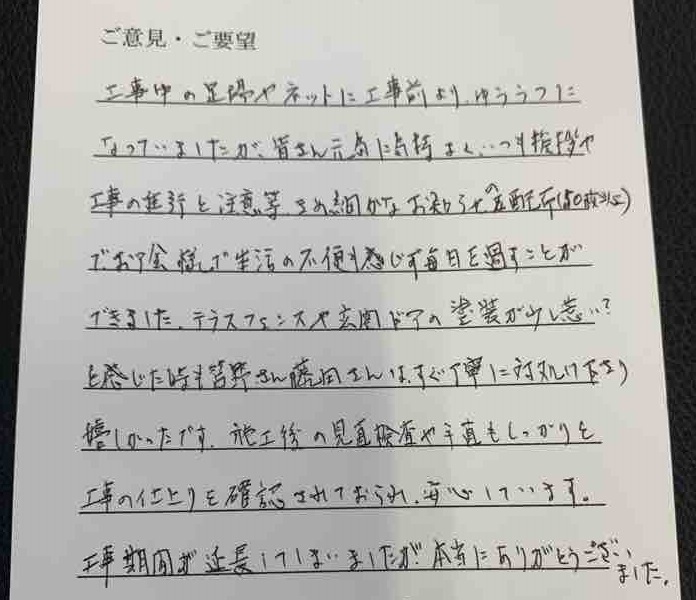 ご意見・ご要望
工事中の足場やネットに工事前より、ゆううつに
なっていましたが、皆さん元気に気持よく、いつも挨拶や
工事の進行と注意等、きめ細かなお知らせの配布(50枚以上)
で、お陰様で生活の不便も感じず毎日を過すことが
できました。テラスフェンスや玄関ドアの塗装が少し悪い?
と感じた時も菅野さん藤田さんは、すぐ丁寧に対処け下さり
嬉しかったです。施工後の見直検査や手直もしっかりと
工事の仕上りを確認されておられ、安心しています。
工事期間が延長していまいましたが、本当にありがとうございました。